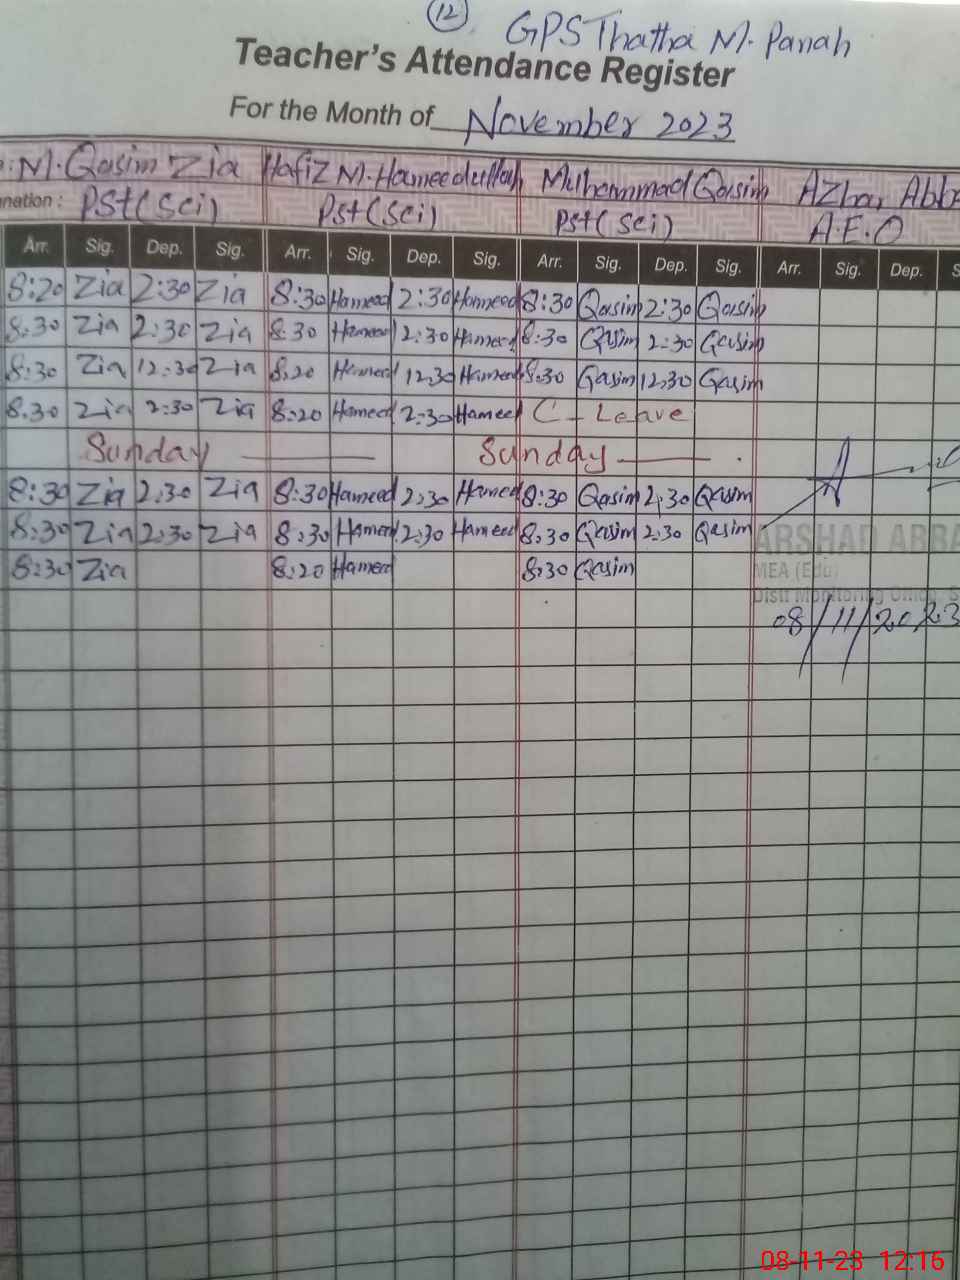 12 GPS Thatha M. Panah
Teacher's Attendance Register
For the Month of November 2023
M. Qasim Zia Hafiz M. Hameedullah Muhammad Qasim Azhar Abb
nation: PSt(Sci) PSt(Sci) PSt(Sci) A.E.O
Arr. Sig. Dep. Sig. Arr. Sig. Dep. Sig. Arr. Sig. Dep. Sig. Arr. Sig. Dep. S
8:20 Zia 2:30 Zia 8:30 Hameed 2:30 Hameed 8:30 Qasim 2:30 Qasim
8:30 Zia 2:30 Zia 8:30 Hameed 2:30 Hameed 8:30 Qasim 2:30 Qasim
8:30 Zia 12:30 Zia 8:20 Hameed 12:30 Hameed 8:30 Qasim 12:30 Qasim
8:30 Zia 2:30 Zia 8:20 Hameed 2:30 Hameed C-Leave
Sunday Sunday
8:30 Zia 2:30 Zia 8:30 Hameed 2:30 Hameed 8:30 Qasim 2:30 Qasim
8:30 Zia 2:30 Zia 8:30 Hameed 2:30 Hameed 8:30 Qasim 2:30 Qasim
ARSHAD ABBA
8:30 Zia 8:20 Hameed 8:30 Qasim
MEA (Edu)
Distt Monitoring Office, S
08/11/2023
08-11-23 12:16